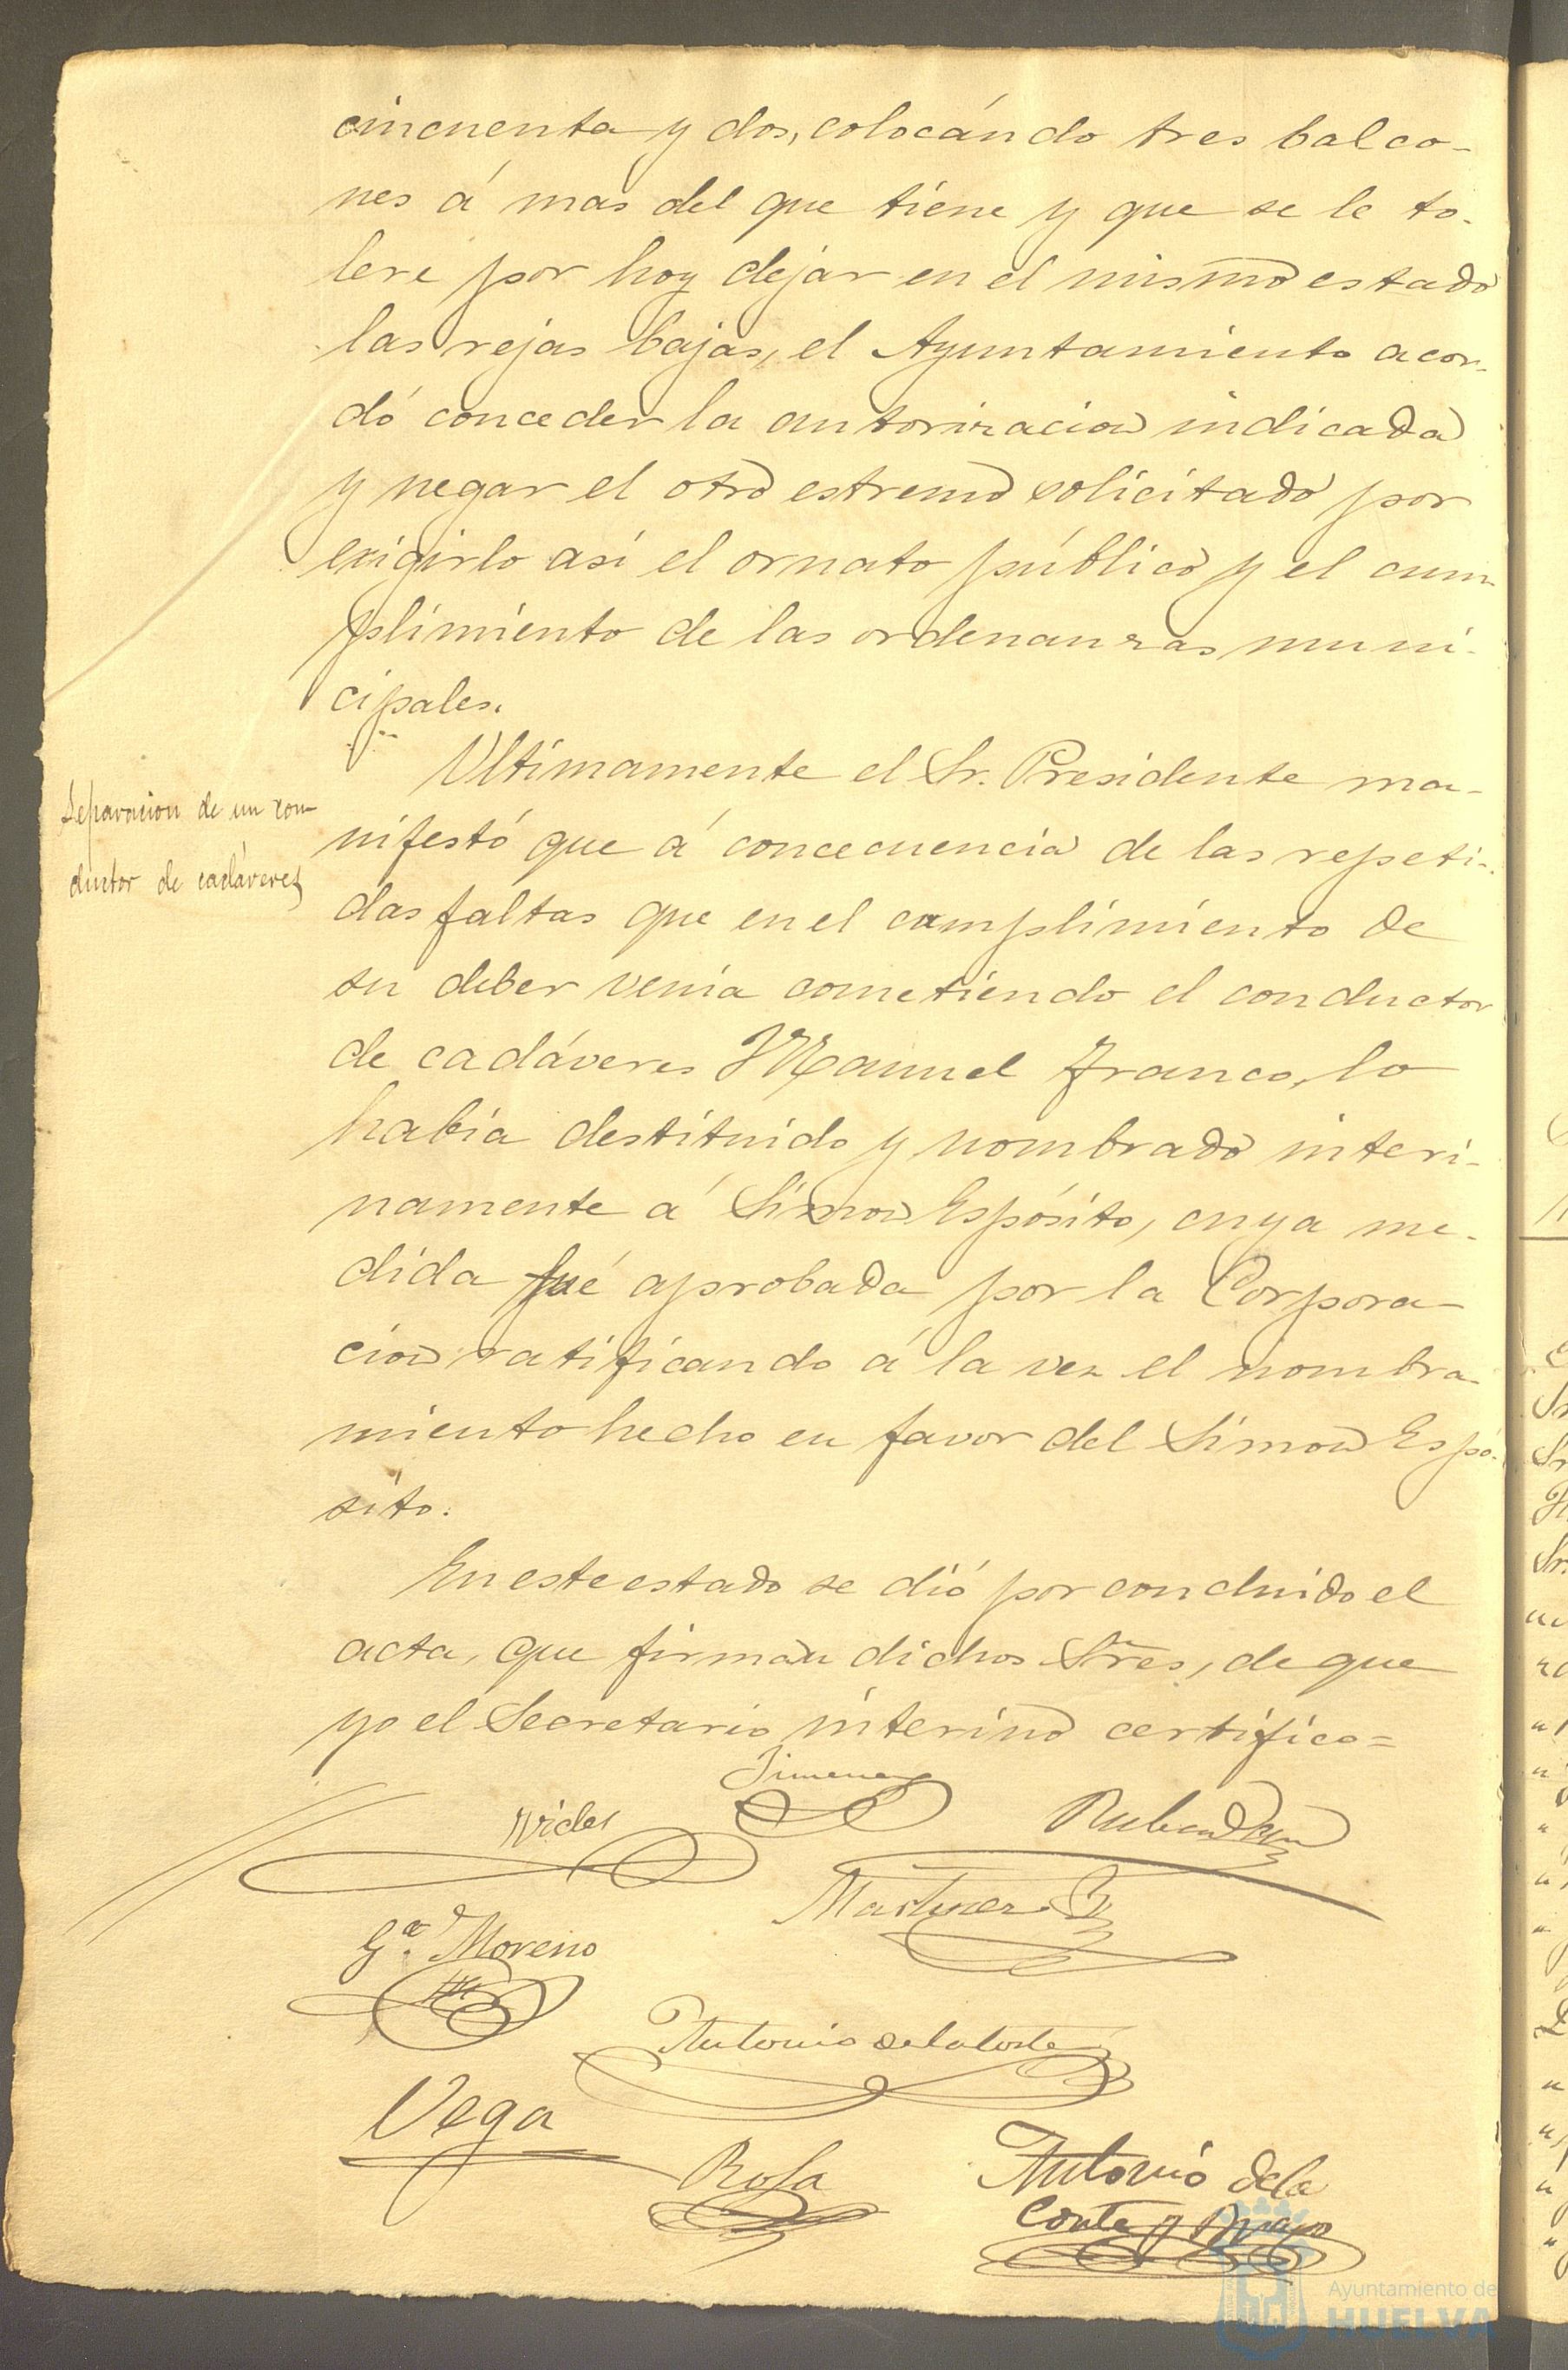 cincuenta y dos, colocándo tres balco-
nes á mas del que tiene y que se le to-
lere por hoy dejar en el mismo estado
las rejas bajas, el Ayuntamiento acor-
dó conceder la autorizacion indicada
y negar el otro estremo solicitado por
exigirlo así el ornato público y el cum-
plimiento de las ordenanzas muni-
cipales.
Separacion de un con-
ductor de cadáveres
Ultimamente el Sr. Presidente ma-
nifestó que á concecuencia de las repeti-
das faltas que en el cumplimiento de
su deber venía cometiendo el conductor
de cadáveres Manuel Franco, lo
había destituido y nombrado interi-
namente á Simon Espósito, cuya me-
dida fué aprobada por la Corpora-
cion ratificando á la vez el nombra-
miento hecho en favor del Simon Espó-
sito.
En este estado se dió por concluido el
acta, que firman dichos Sres, de que
yo el Secretario interino certifico=
Jimenez
Vides
Martinez
Gª Moreno
Antonio de la Corte
Vega
Rosa
Antonio de la
Corte y Bravo
Ayuntamiento de
HUELVA